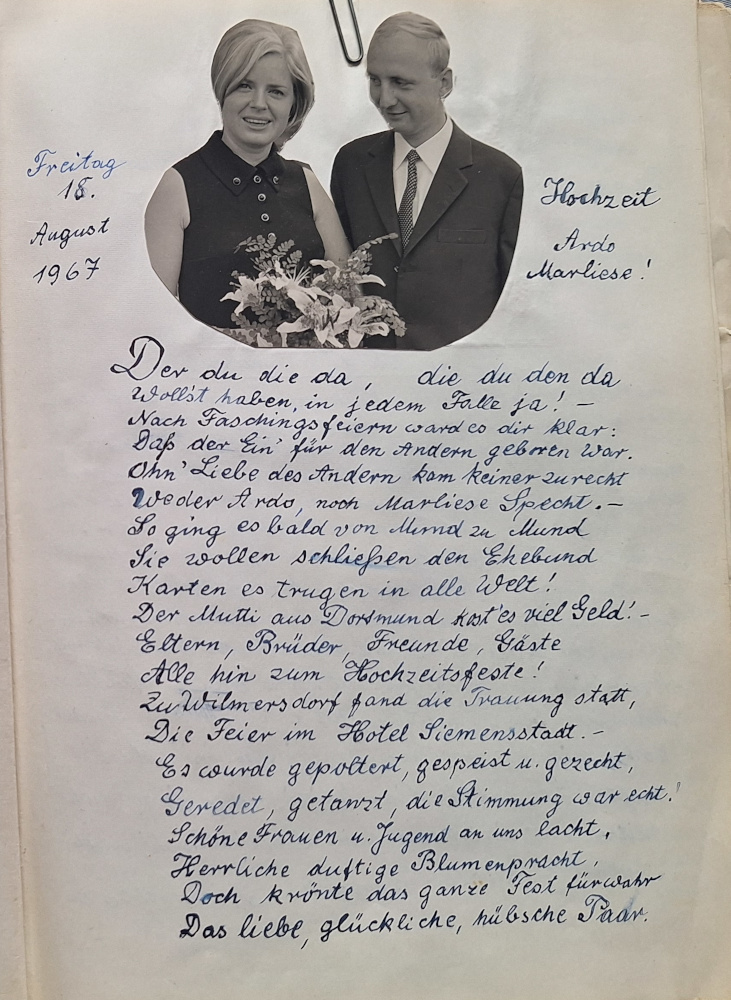 Freitag
18.
August
1967
Hochzeit
Ardo
Marliese!
Der du die da, die du den da
Woll'st haben, in jedem Falle ja! –
Nach Faschingsfeiern ward es dir klar:
Daß der Ein' für den Andern geboren war.
Ohn' Liebe des Andern kam keiner zurecht
Weder Ardo, noch Marliese Specht. –
So ging es bald von Mund zu Mund
Sie wollen schließen den Ehebund
Karten es trugen in alle Welt!
Der Mutti aus Dortmund kost'es viel Geld! –
Eltern, Brüder, Freunde, Gäste
Alle hin zum Hochzeitsfeste!
Zu Wilmersdorf fand die Trauung statt,
Die Feier im Hotel Siemensstadt. –
Es wurde gepoltert, gespeist u. gezecht,
Geredet, getanzt, die Stimmung war echt!
Schöne Frauen u. Jugend an uns lacht,
Herrliche duftige Blumenpracht,
Doch krönte das ganze Fest fürwahr
Das liebe, glückliche, hübsche Paar.